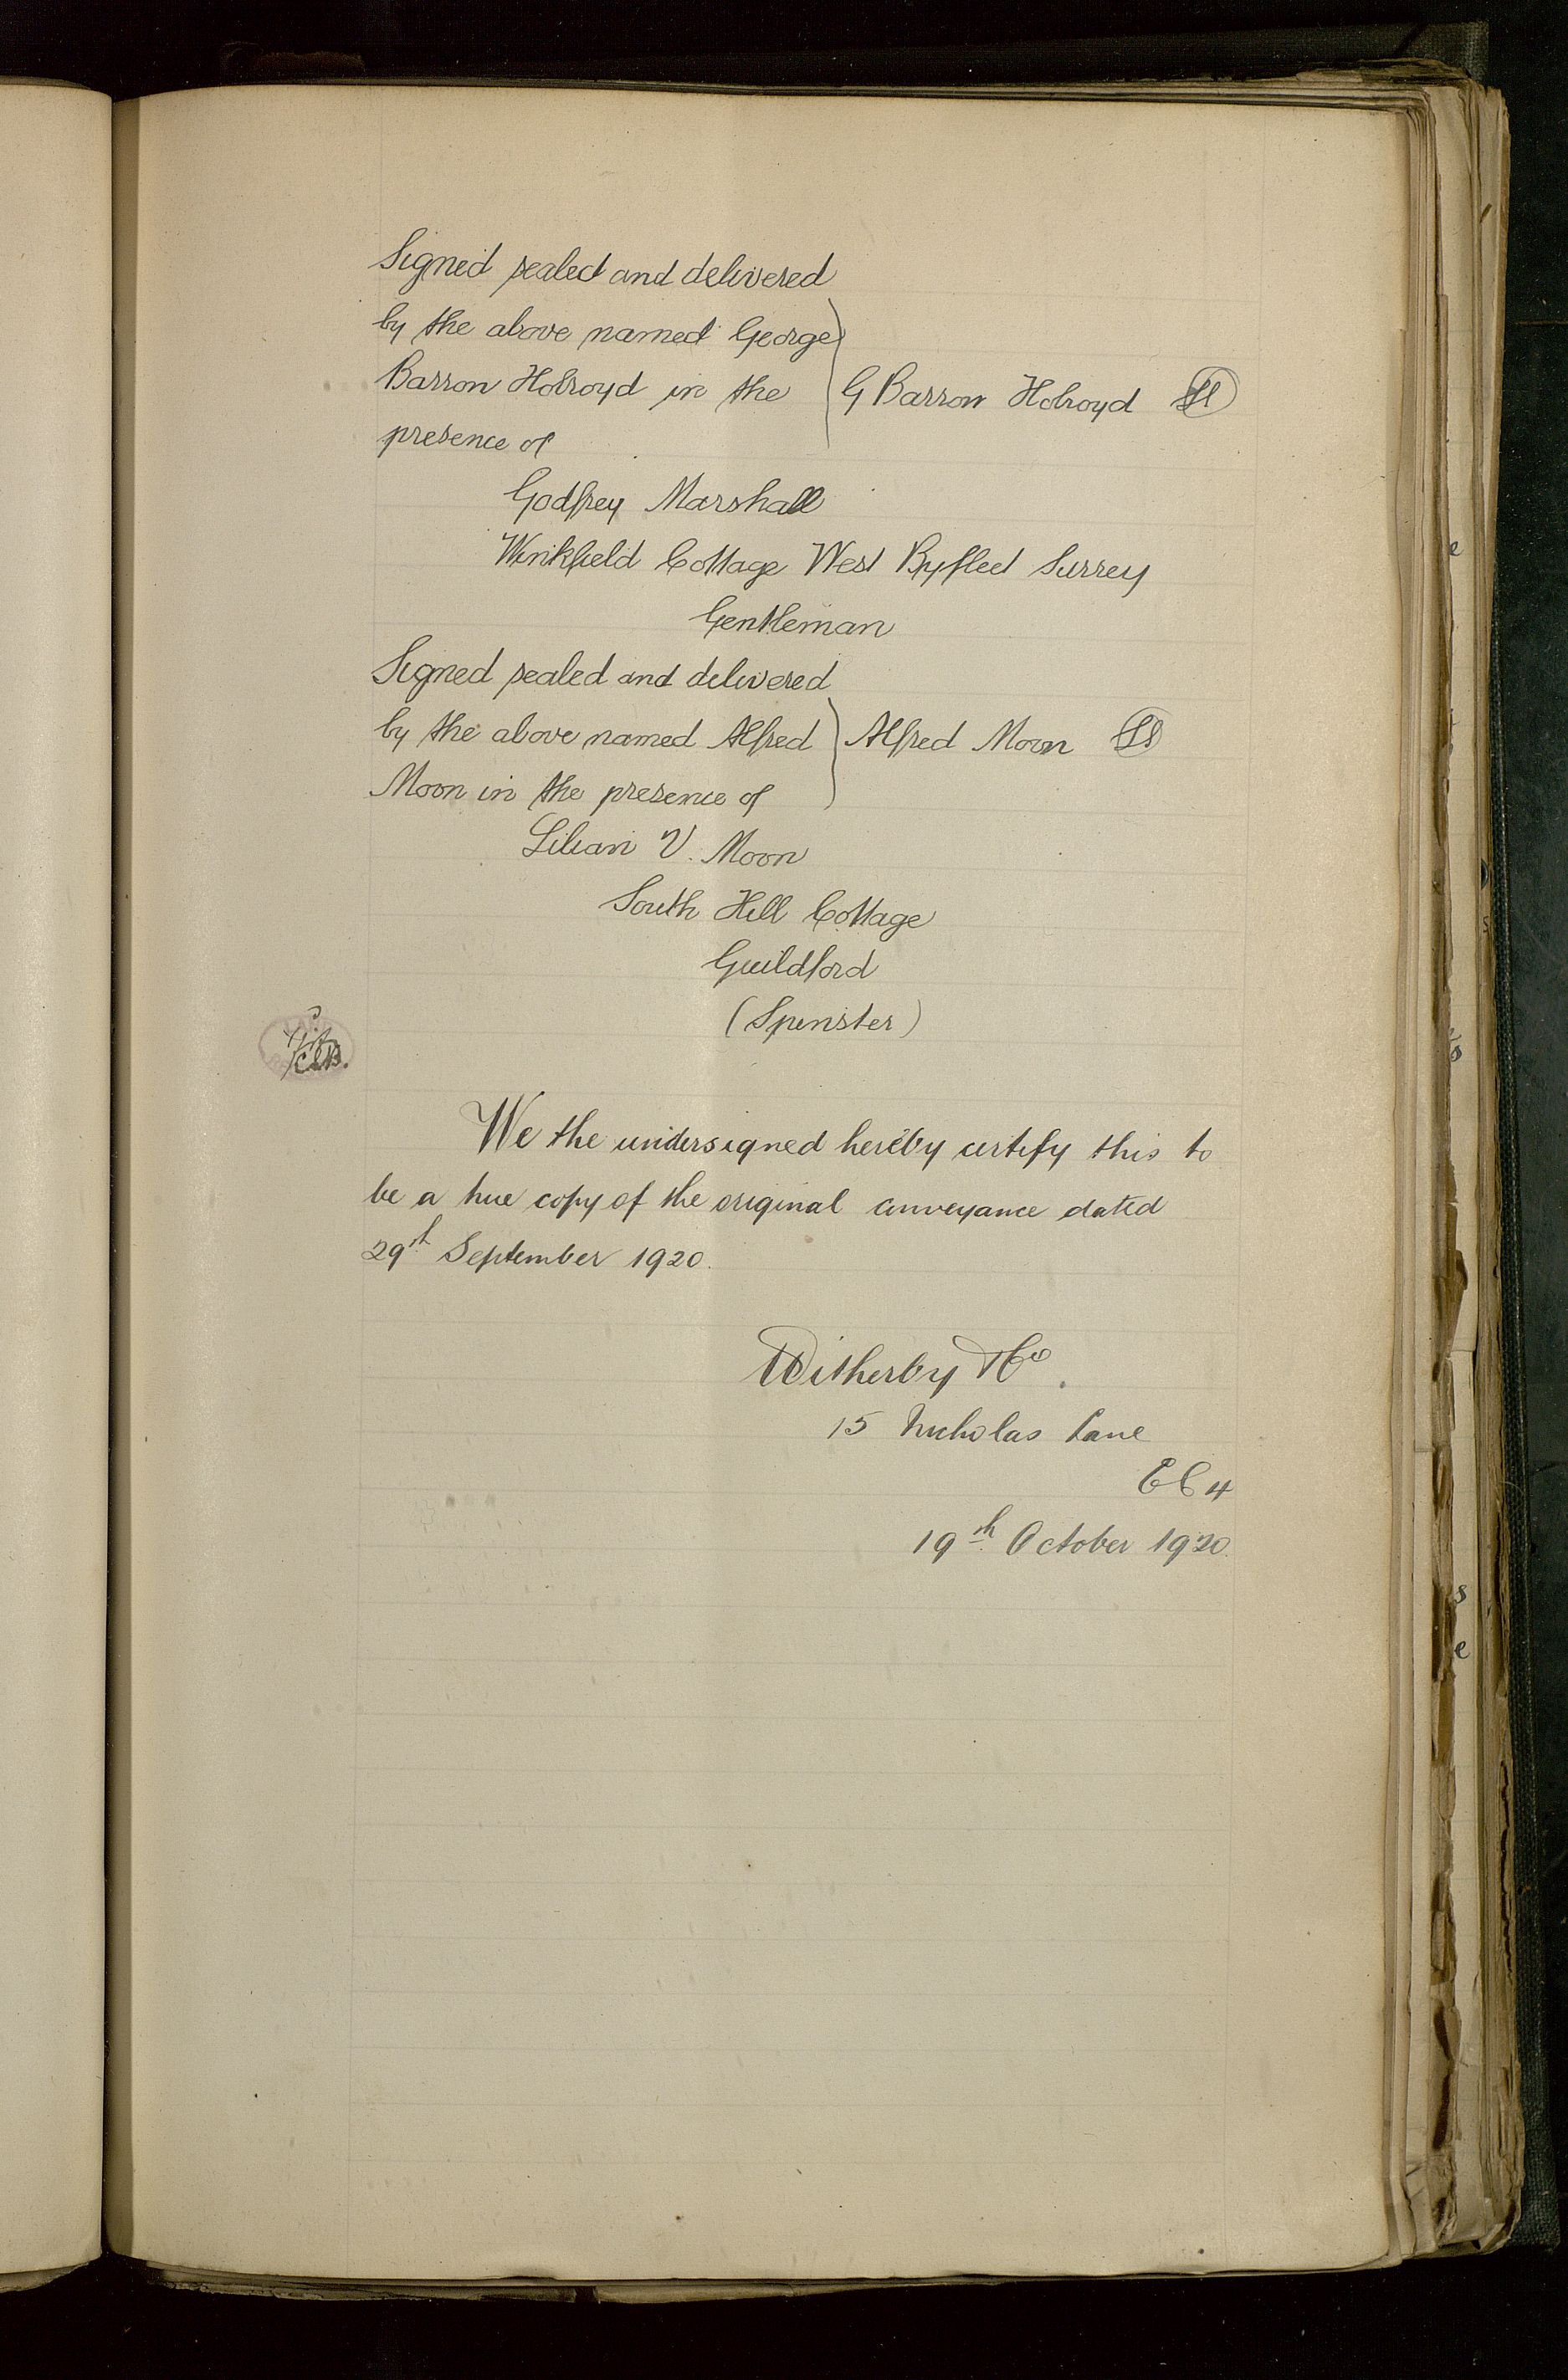 Signed sealed and delivered
by the above named George
Barron Holroyd in the
presence of
G Barron Holroyd LS
Godfrey Marshall
Winkfield Cottage West Byfleet Surrey
Gentleman
Signed sealed and delivered
by the above named Alfred
Moon in the presence of
Alfred Moon LS
Lilian V. Moon
South Hill Cottage
Guildford
(Spinster)
We the undersigned hereby certify this to
be a true copy of the original conveyance dated
29th September 1920.
Witherby & Co.
15 Nicholas Lane
EC4
19th October 1920.